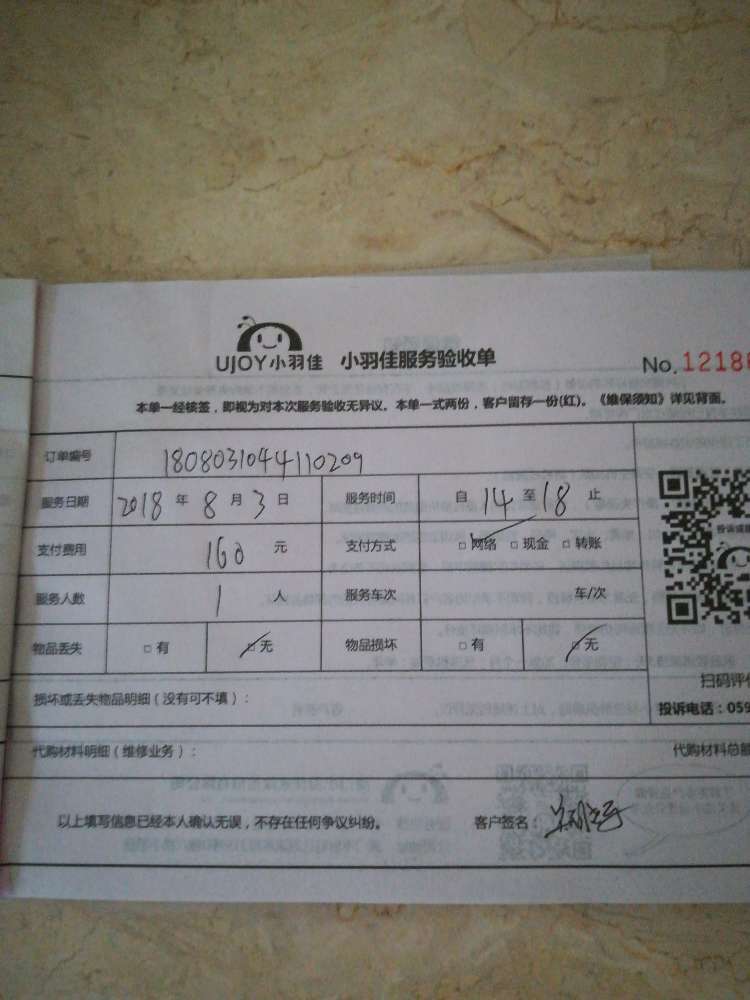 UJOY小羽佳 小羽佳服务验收单 No.1218
本单一经核签，即视为对本次服务验收无异议。本单一式两份，客户留存一份(红)。《维保须知》详见背面。
订单编号 1808031044110209
服务日期 2018 年 8 月 3 日 服务时间 自 14 至 18 止
支付费用 160 元 支付方式 □网络 □现金 □转账
服务人数 1 人 服务车次 车/次
物品丢失 □有 □无 物品损坏 □有 □无
损坏或丢失物品明细（没有可不填）：
扫码评价
投诉电话：059
代购材料明细（维修业务）： 代购材料总额
以上填写信息已经本人确认无误，不存在任何争议纠纷。 客户签名：